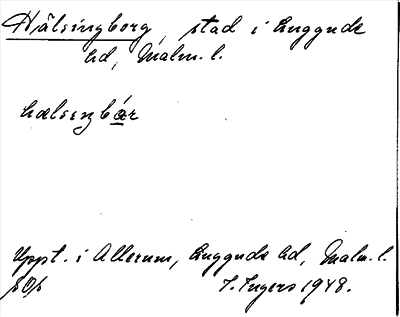 Hälsingborg, stad i Luggude
hd, Malm. l.
hælsiŋbár
Uppt. i Allerum, Luggude hd, Malm. l.
I. Ingers 1948.